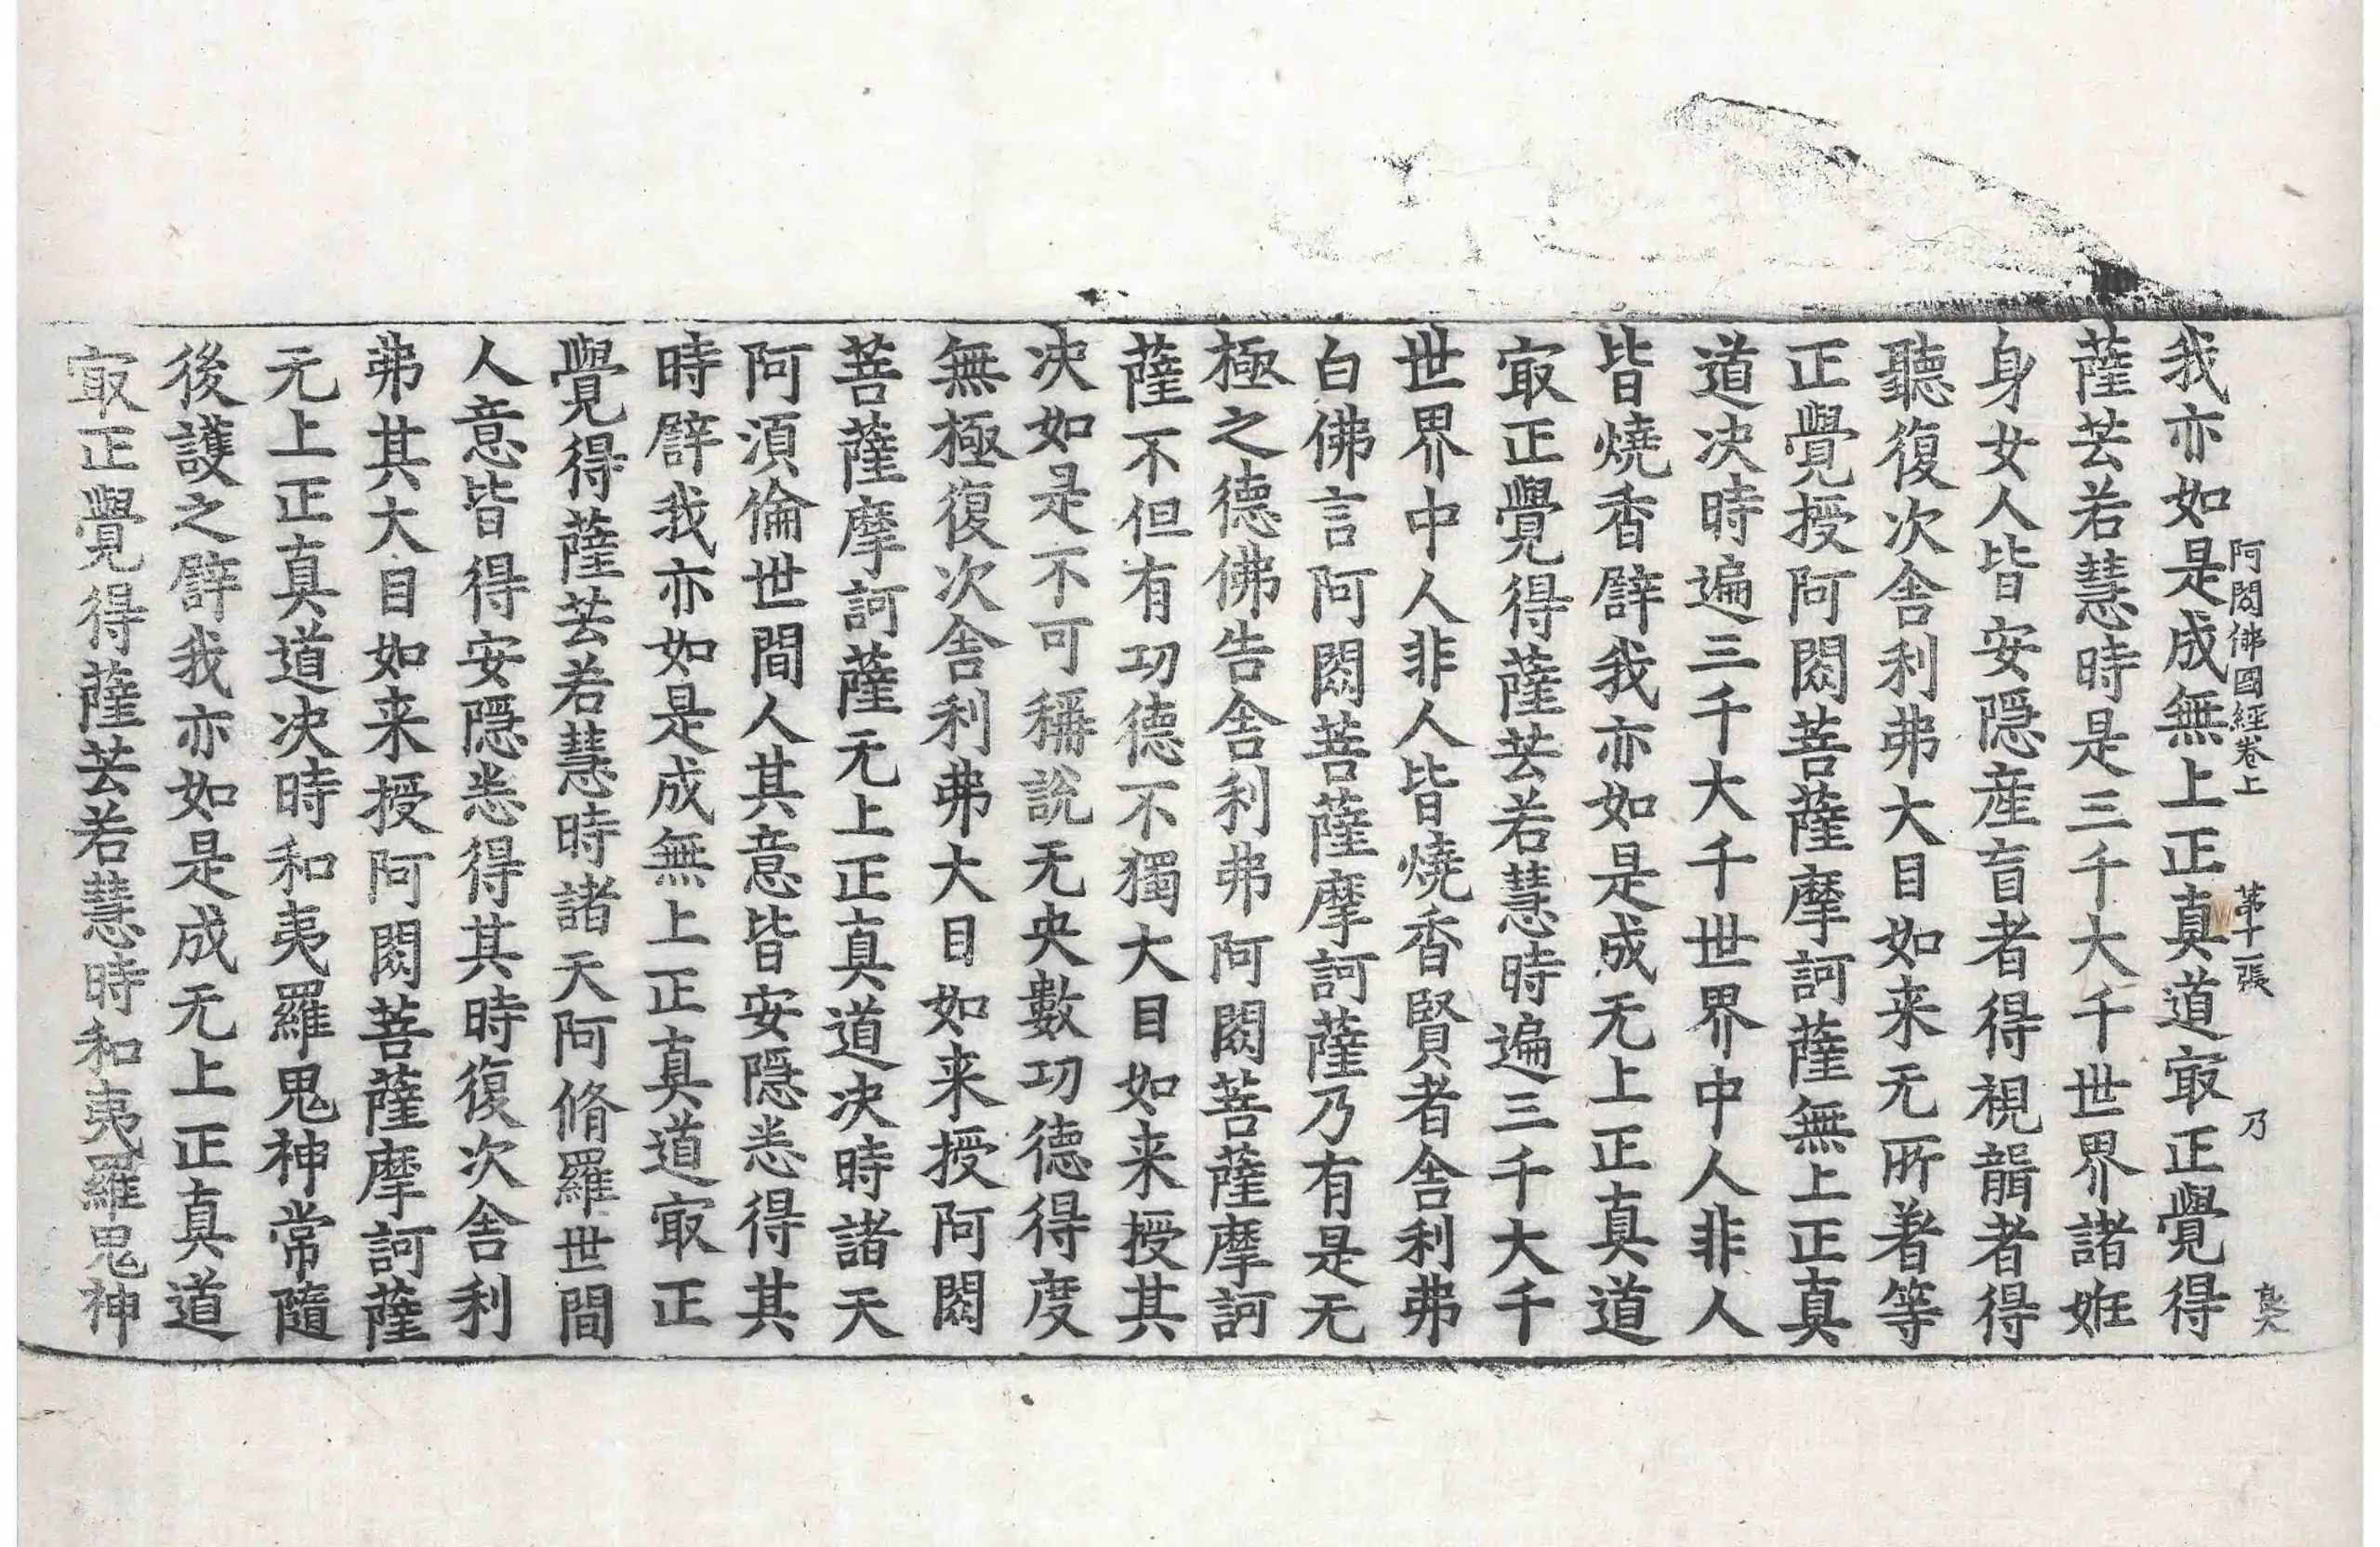 阿閦佛國經卷上 第十一張 乃
我亦如是成無上正真道㝡正覺得
薩芸若慧時是三千大千世界諸妊
身女人皆安隱産盲者得視聾者得
聽復次舍利弗大目如来无所著等
正覺授阿閦菩薩摩訶薩無上正真
道决時遍三千大千世界中人非人
皆燒香辟我亦如是成无上正真道
㝡正覺得薩芸若慧時遍三千大千
世界中人非人皆燒香賢者舍利弗
白佛言阿閦菩薩摩訶薩乃有是无
極之德佛告舍利弗阿閦菩薩摩訶
薩不但有功德不獨大目如来授其
决如是不可稱說无央數功德得度
無極復次舍利弗大目如来授阿閦
菩薩摩訶薩无上正真道决時諸天
阿湏倫世間人其意皆安隱悉得其
時辟我亦如是成無上正真道㝡正
覺得薩芸若慧時諸天阿脩羅世間
人意皆得安隱悉得其時復次舍利
弗其大目如来授阿閦菩薩摩訶薩
无上正真道决時和夷羅鬼神常隨
後護之辟我亦如是成无上正真道
㝡正覺得薩芸若慧時和夷羅鬼神